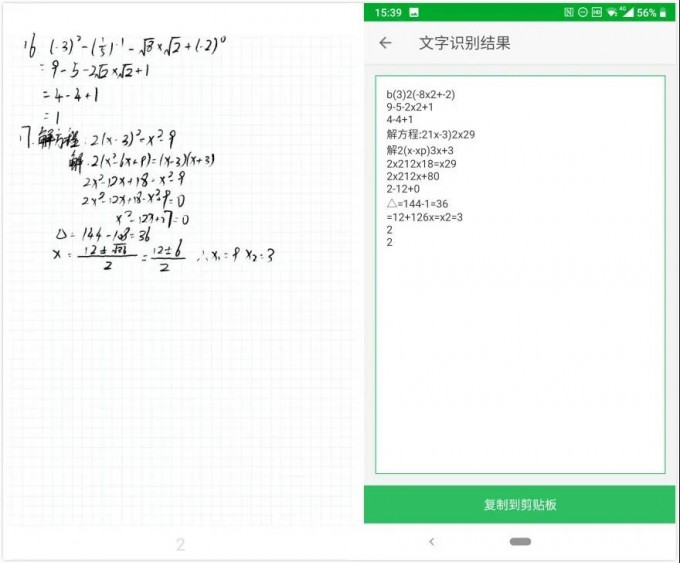 16 (-3)² - (1/5)⁻¹ - √8 × √2 + (-2)⁰
= 9 - 5 - 2√2 × √2 + 1
= 4 - 4 + 1
= 1
17. 解方程: 2(x - 3)² = x² - 9
解: 2(x² - 6x + 9) = (x - 3)(x + 3)
2x² - 12x + 18 = x² - 9
2x² - 12x + 18 - x² + 9 = 0
x² - 12x + 27 = 0
Δ = 144 - 108 = 36
x = (12 ± √36)/2 = (12 ± 6)/2 ∴ x₁ = 9 x₂ = 3
2
15:39 N HD 4G 56%
文字识别结果
b(3)2(-8x2+-2)
9-5-2x2+1
4-4+1
解方程:21x-3)2x29
解2(x-xp)3x+3
2x212x18=x29
2x212x+80
2-12+0
△=144-1=36
=12+126x=x2=3
2
2
复制到剪贴板